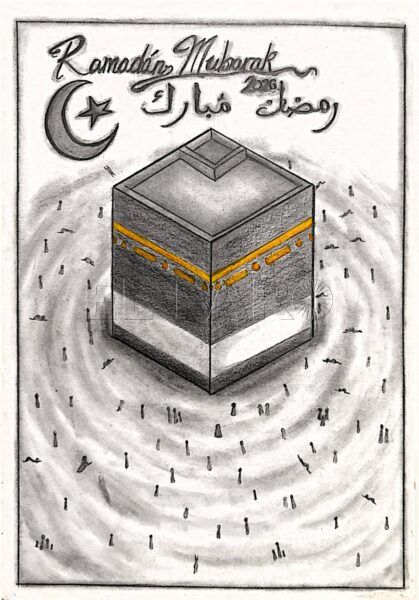 Ramadán Mubarak
2026
رمضان مُبارك